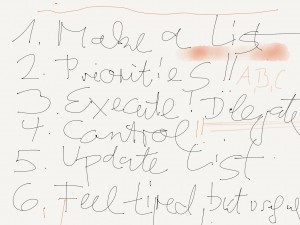 1. Make a List
2. Priorities!! A,B,C
3. Execute! Dilegate
4. Cantrol!!
5. Update List
6. Feel tired, but